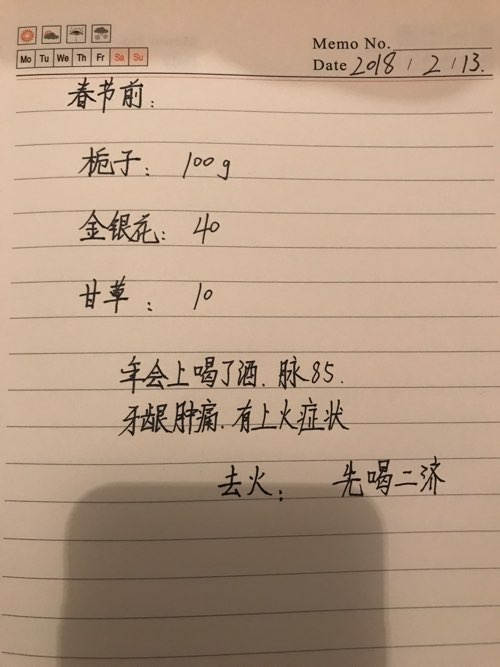 Memo No.
Mo Tu We Th Fr Sa Su
Date 2018 / 2 / 13.
春节前：
栀子： 100g
金银花： 40
甘草： 10
年会上喝了酒. 脉85.
牙龈肿痛. 有上火症状
去火： 先喝二济